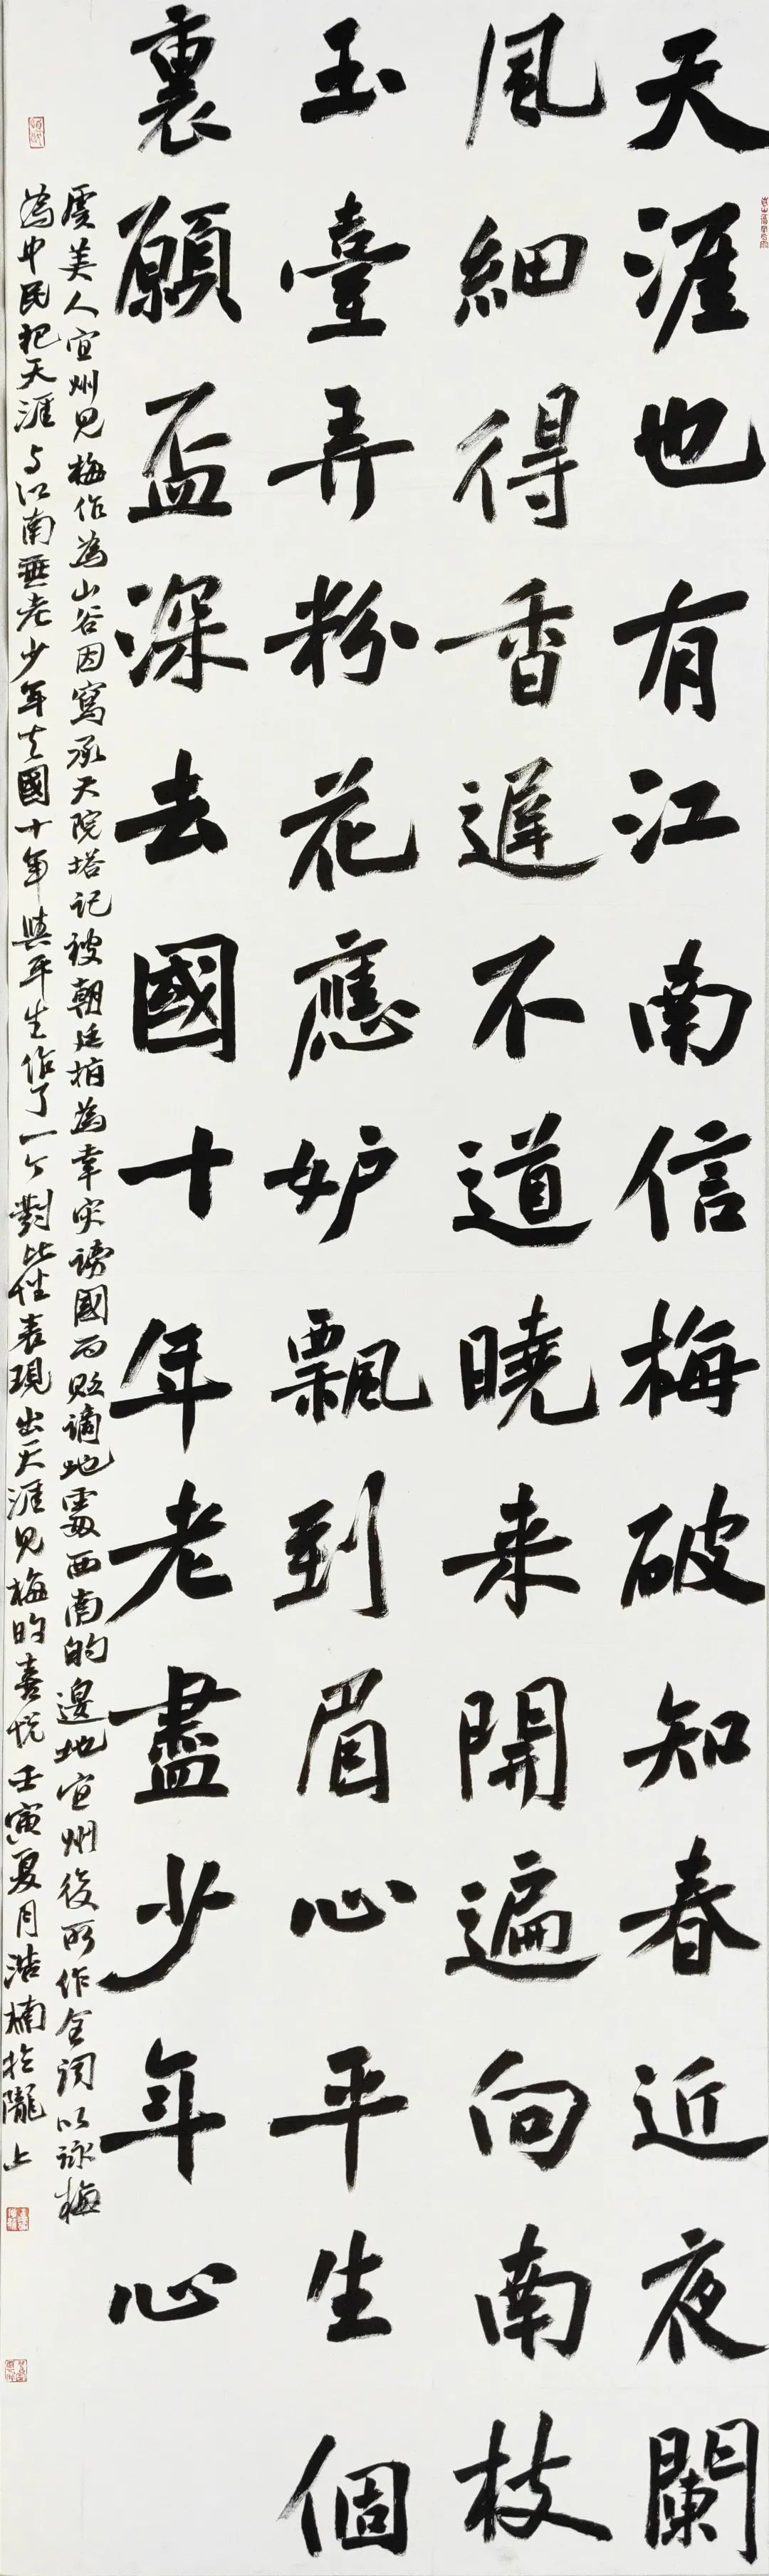 天涯也有江南信梅破知春近夜闌
風細得香遲不道曉来開遍向南枝
玉臺弄粉花應妒飄到眉心平生個
裏願盃深去國十年老盡少年心
虞美人宜州見梅作為山谷因寫承天院塔記被朝廷指為幸灾謗國而貶謫地處西南的邊地宜州後所作全詞以詠梅
為中 把天涯与江南 老少年去國十年與平生作了一个對比性表現出天涯見梅的喜悦壬寅夏月浩楠於隴上